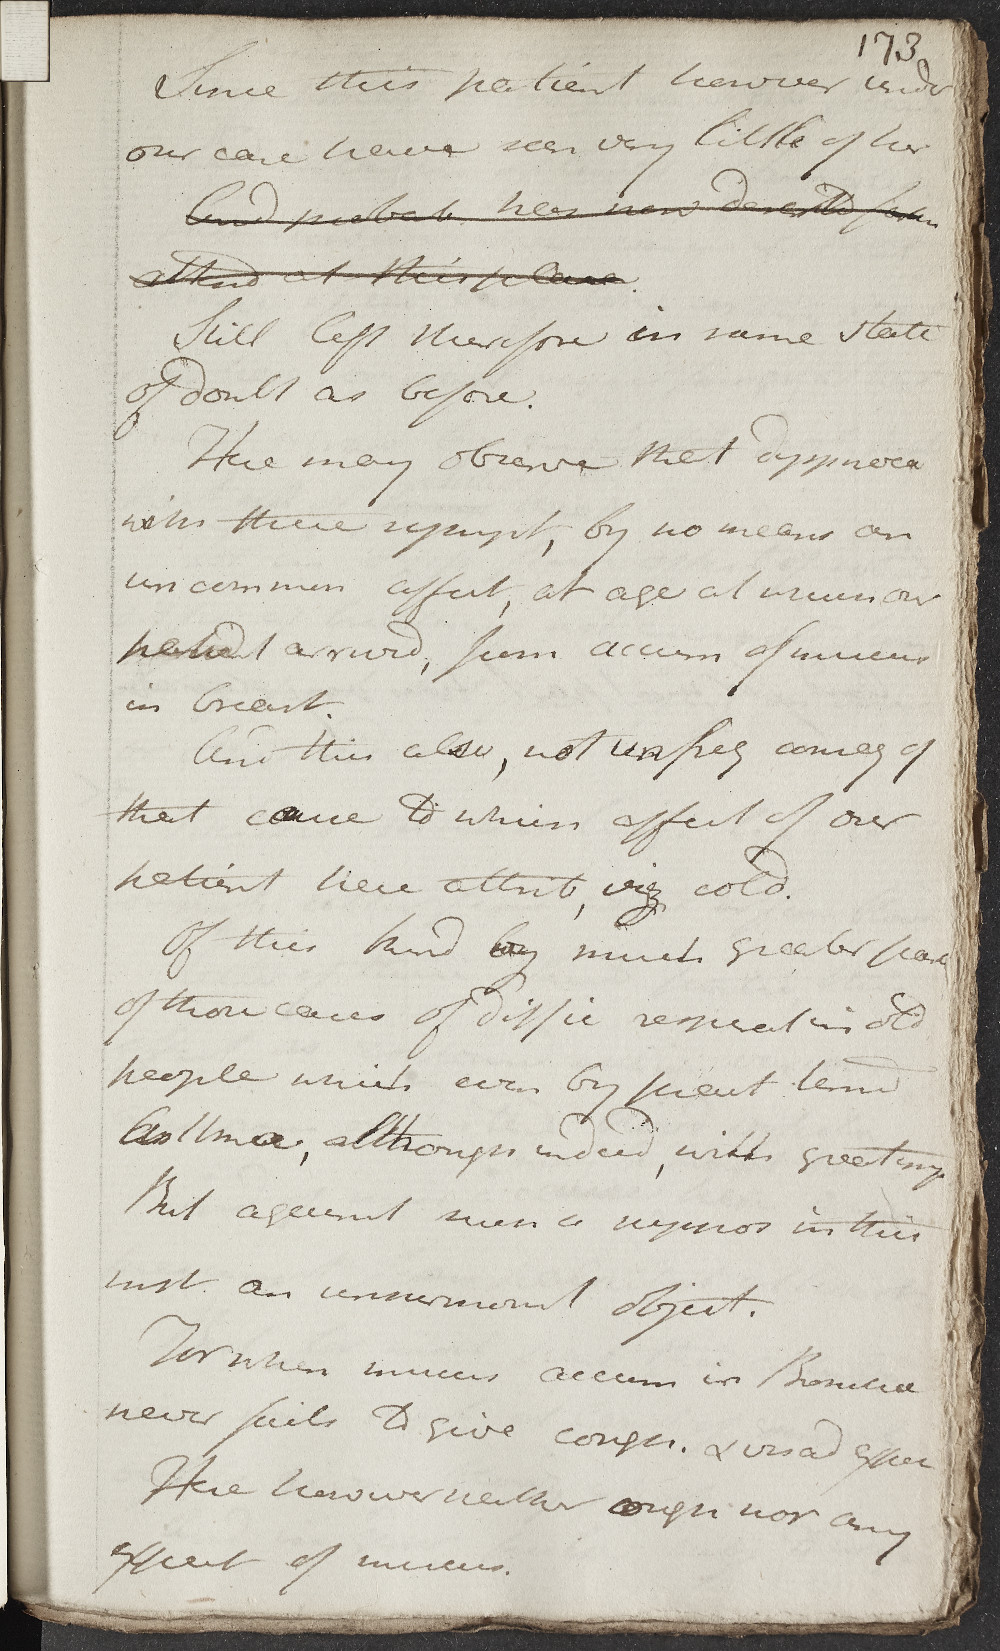 173
Since this patient however under
our care have seen very little of her
And probab has now deserted from
attend at this place.
Still left therefore in same state
of doubt as before.
Here may observe that dyspnoea
with these sympt, by no means an
uncommon affect, at age at which our
patient arrived, from accum of mucus
in breast.
And this also, not unfreq conseq of
that cause to which affect of our
patient here attrib, viz cold.
Of this kind by much greater part
of those cases of diffic respirat in old
people which even by pract termd
Asthma, although indeed, with great imp
But against such a suppos in this
inst. an unsurmount object.
For when mucus accum in Bronchia
never fails to give cough. & viscd expec
Here however neither cough nor any
expect of mucus.